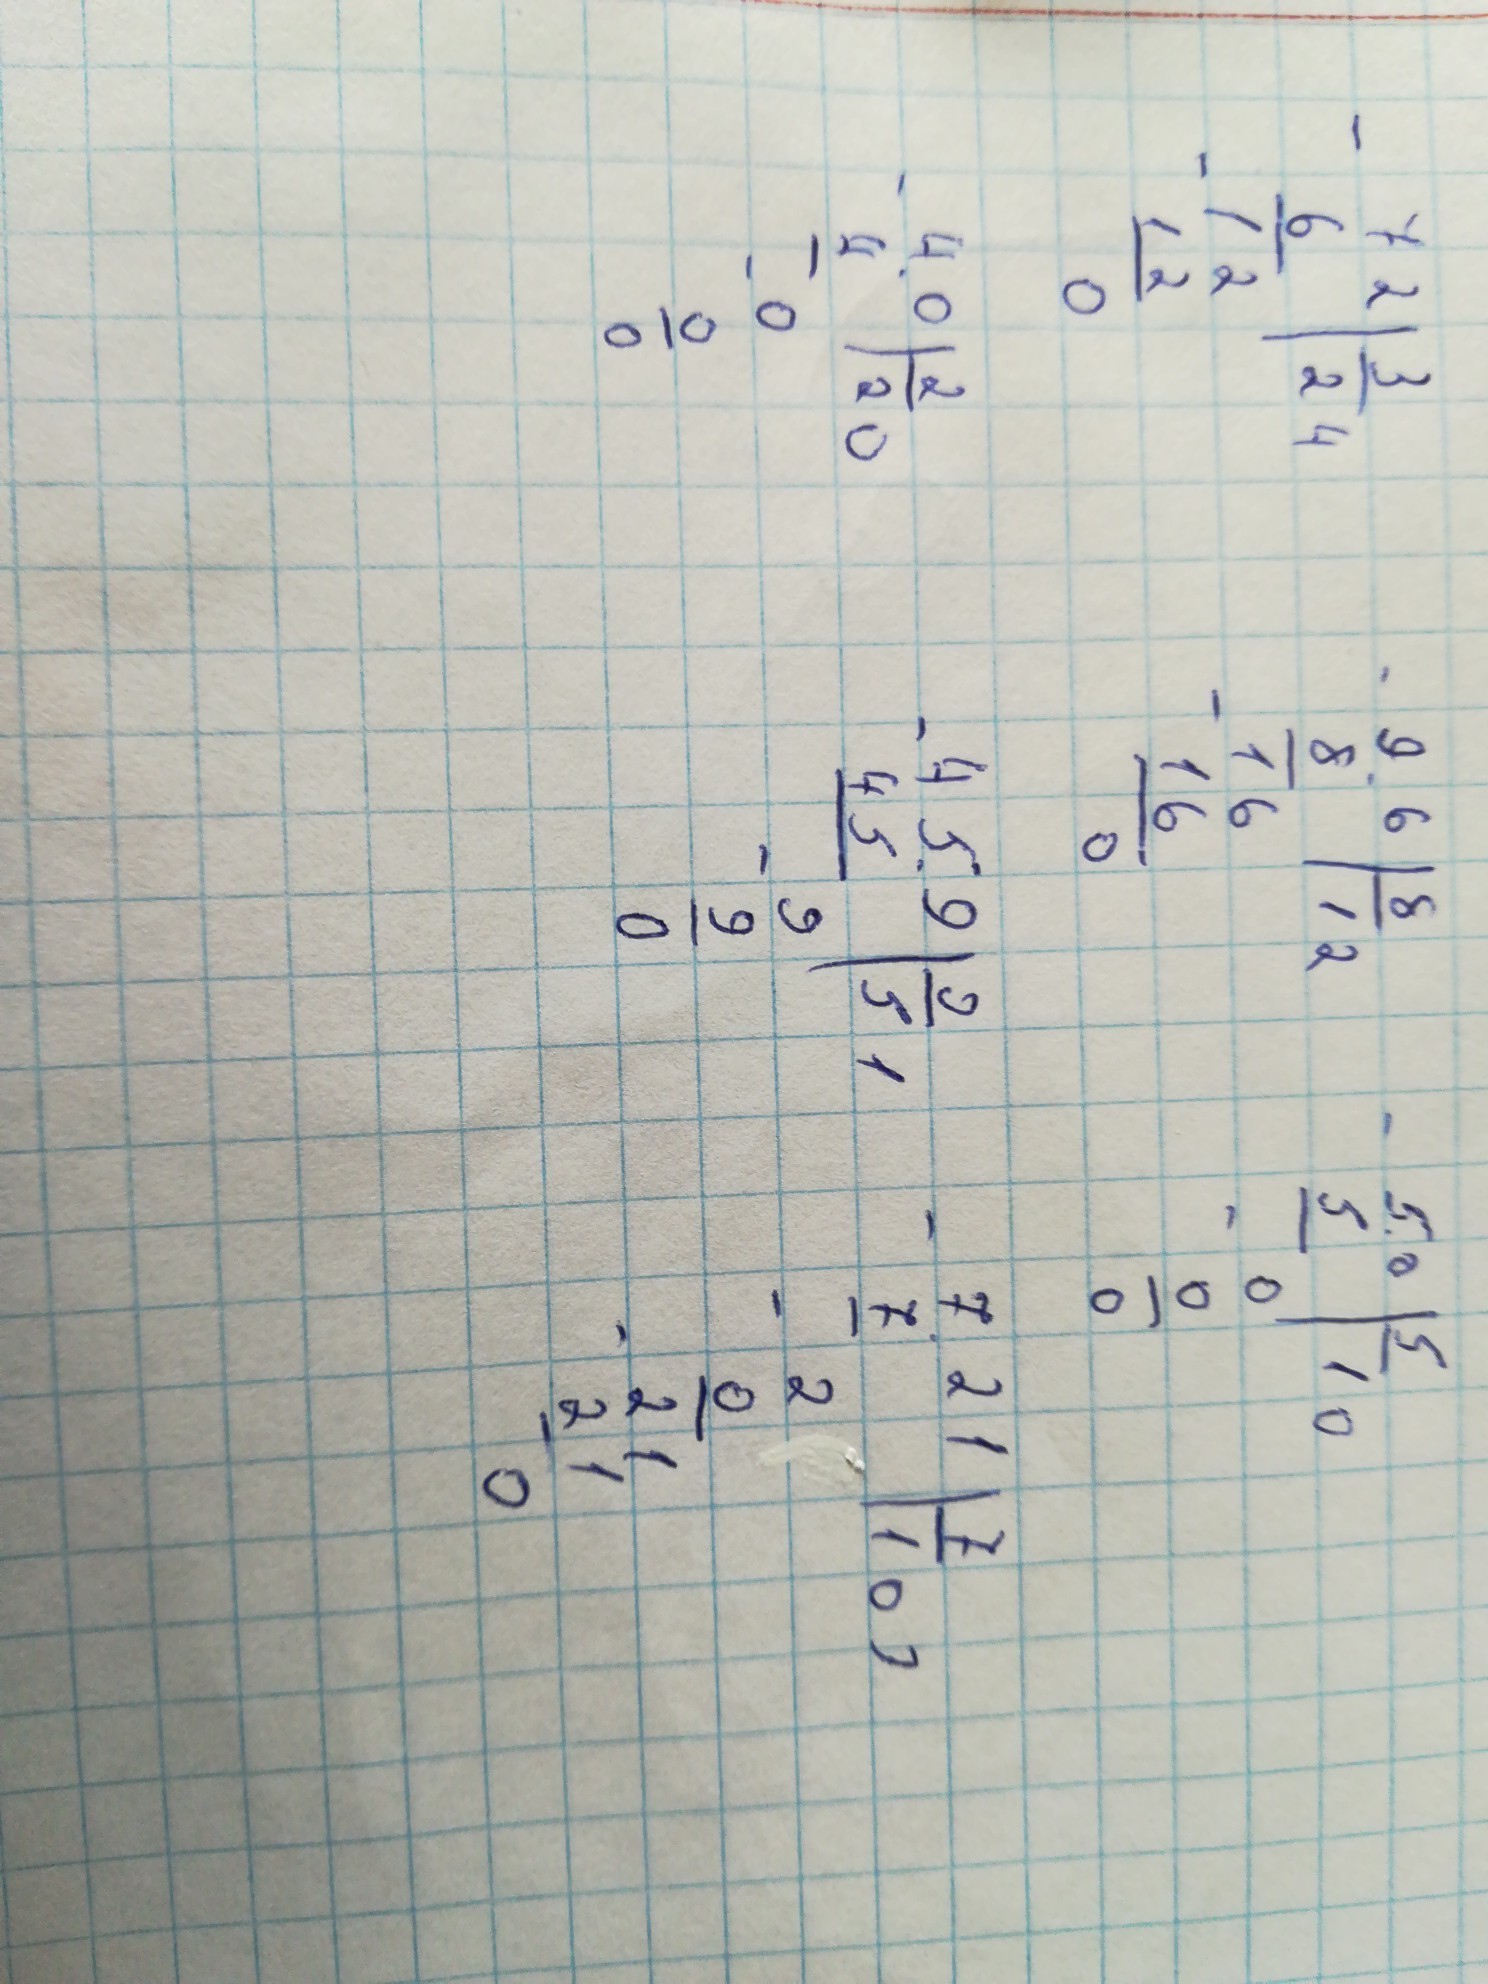 - 72 | 3
6 | 24
- 12
12
0
- 9.6 | 8
8 | 12
- 16
16
0
- 5.0 | 5
5 | 10
- 0
0
0
- 4.0 | 2
4 | 20
- 0
0
0
- 45.9 | 9
45 | 51
- 9
9
0
- 7.21 | 7
7 | 103
- 2
0
- 21
21
0